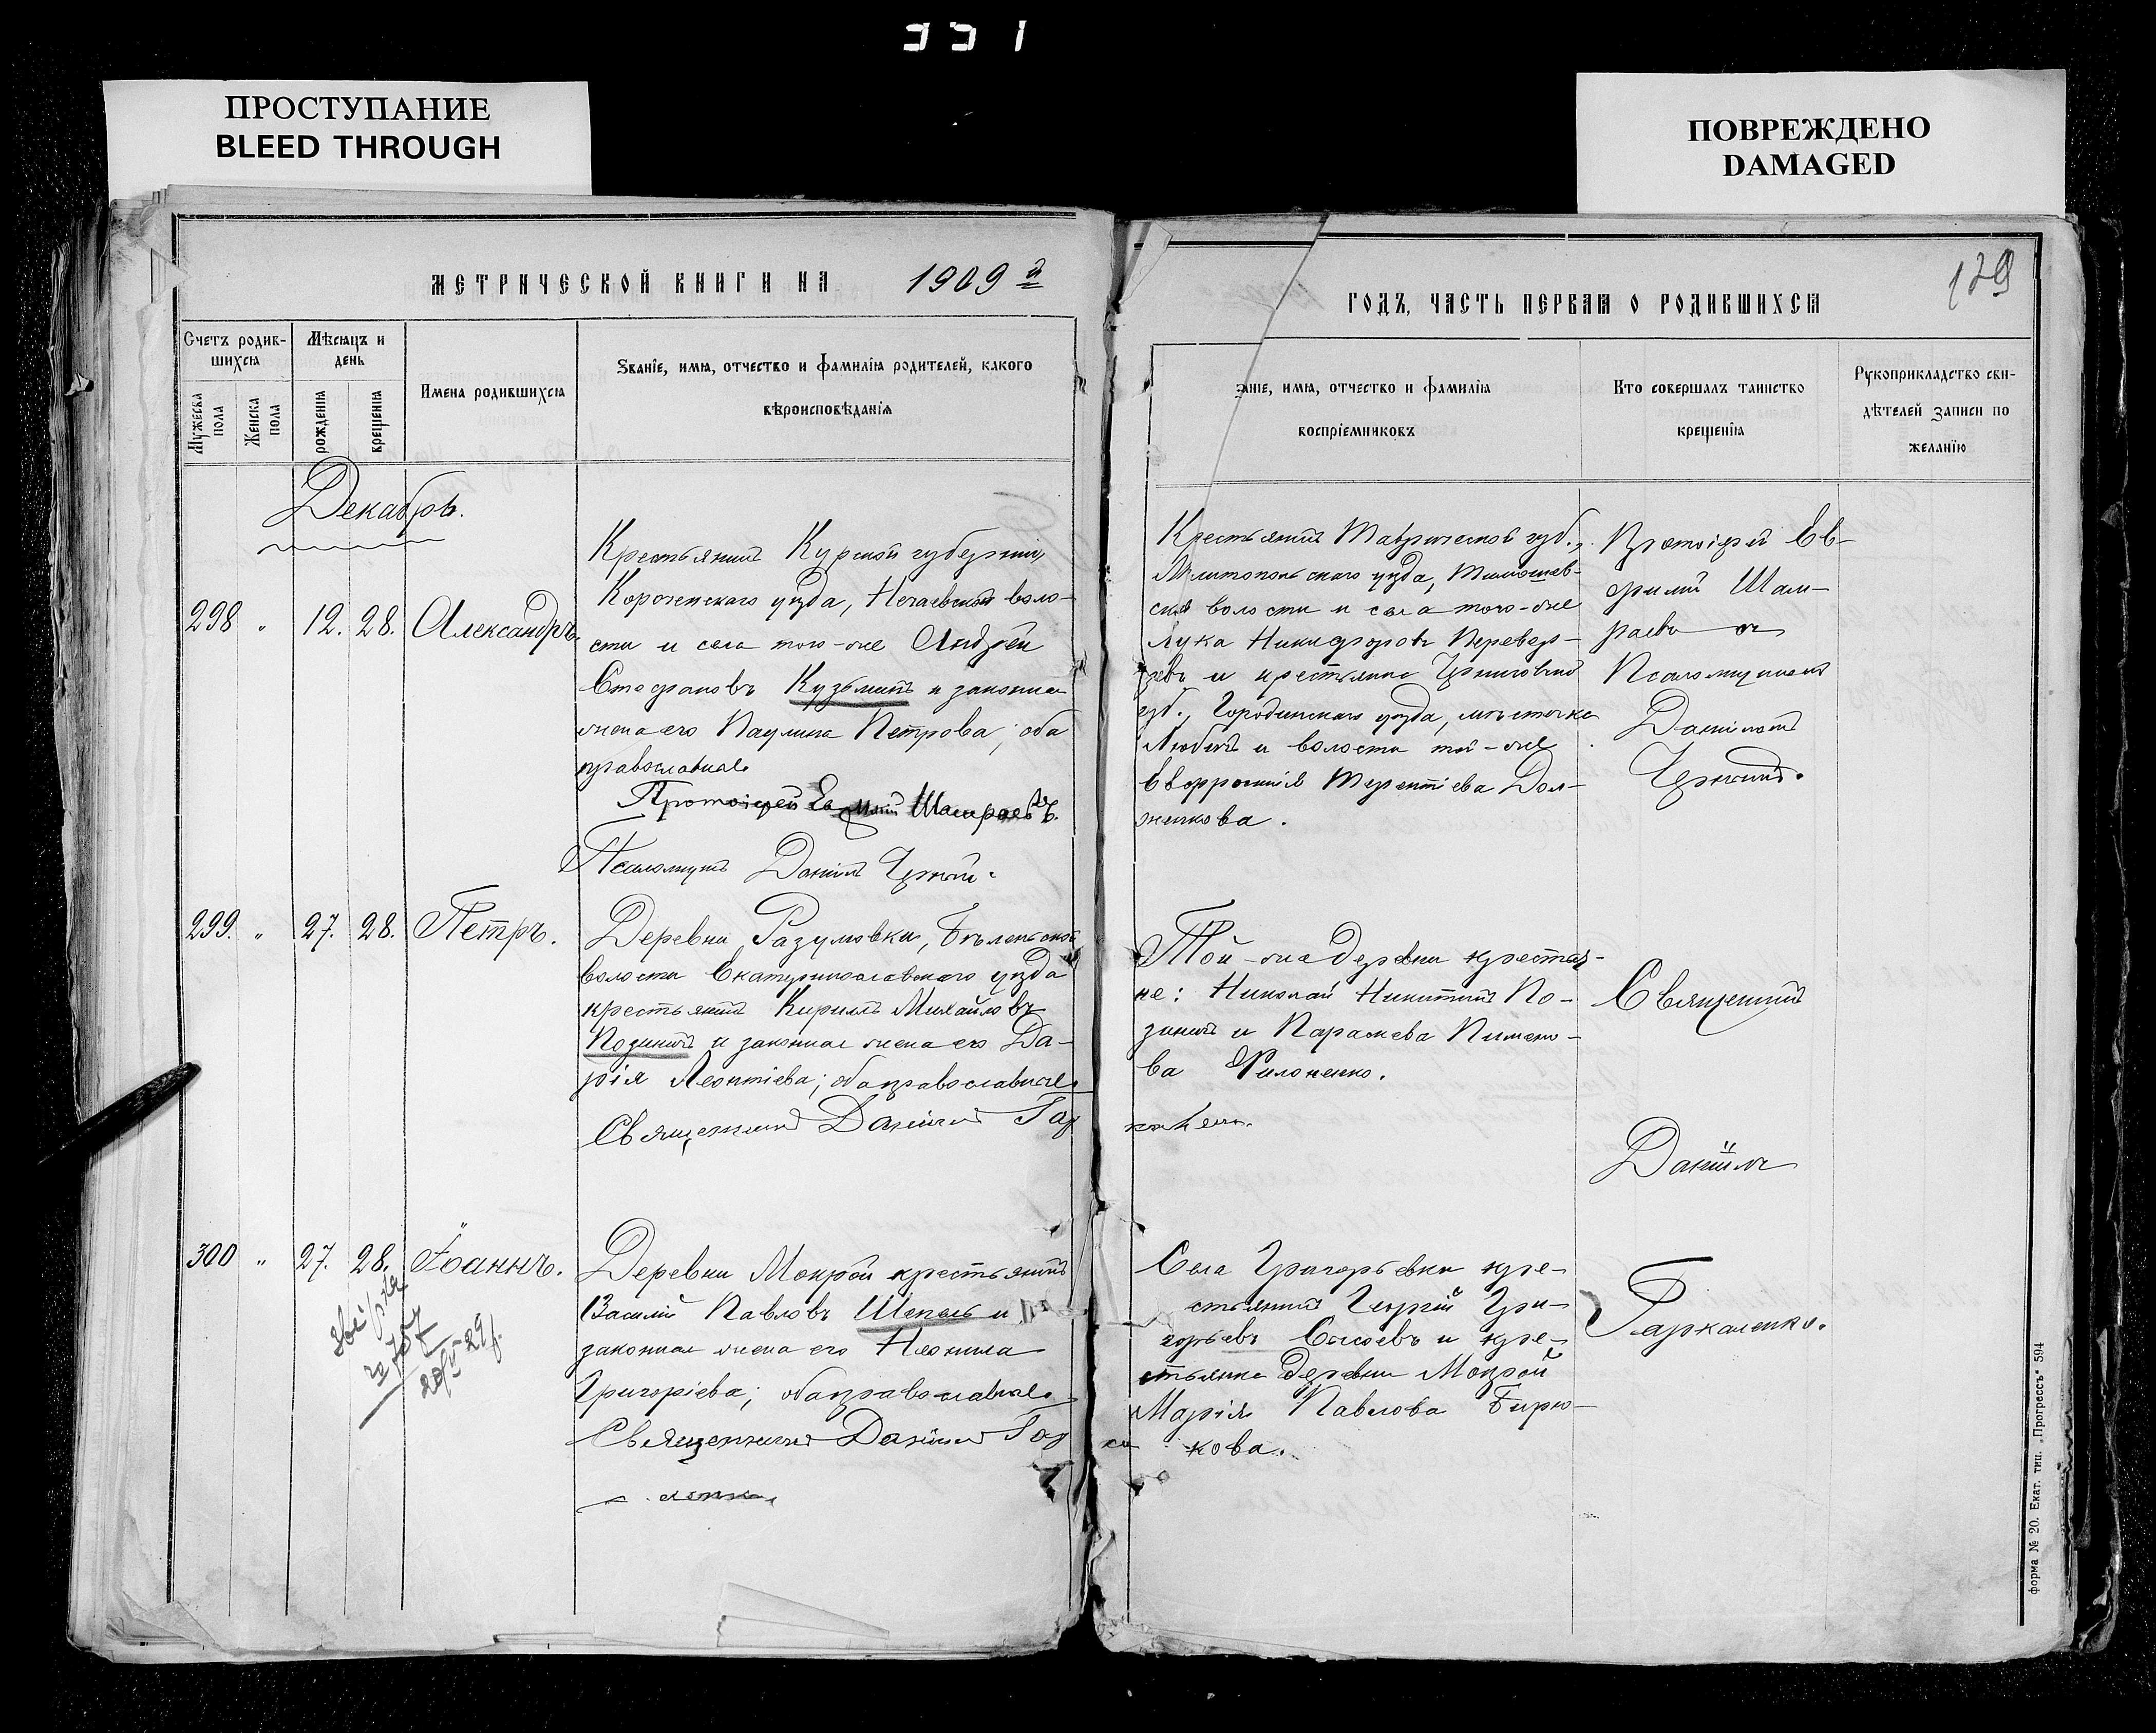 331
ПРОСТУПАНИЕ
BLEED THROUGH
ПОВРЕЖДЕНО
DAMAGED
МЕТРИЧЕСКОЙ КНИГИ НА 1909й
ГОДЪ, ЧАСТЬ ПЕРВАЯ О РОДИВШИХСЯ
129
Счетъ родив-
шихся
Мужеска пола
Женска пола
Мѣсяцъ и
день
рожденія
крещенія
Имена родившихся
Званіе, имя, отчество и фамилія родителей, какого
вѣроисповѣданія
аніе, имя, отчество и фамилія
воспріемниковъ
Кто совершалъ таинство
крещенія
Рукоприкладство сви-
дѣтелей записи по
желанію
Декабрь.
298 " 12. 28. Александръ.
Крестьянинъ Курской губерніи,
Корочанскаго уѣзда, Нечаевской воло-
сти и села того-же Андрей
Стефановъ Кузьминъ и законная
жена его Паулина Петрова; оба
православные.
Протоіерей Ев Шамраевъ.
Псаломщикъ Даніилъ Черный.
Крестьянинъ Таврической губ.,
Мелитопольскаго уѣзда, Тимошев-
ской волости и села того-же
Лука Никифоровъ Перевер-
зевъ и крестьянка Черниговской
губ., Городнянскаго уѣзда, мѣстечка
Любичъ и волости той-же
Евфросинія Терентіева Дол-
женкова.
Протоіерей Ев-
фимій Шам-
раевъ съ
Псаломщикомъ
Даніиломъ
Чернымъ.
299. " 27. 28. Петръ.
Деревни Разумовки, Бѣленьской
волости Екатеринославскаго уѣзда
крестьянинъ Кириллъ Михайловъ
Позинъ и законная жена его Да-
рія Леонтіева; оба православные.
Священникъ Даніилъ Гар
Той-же деревни крестья-
не: Николай Никитинъ По-
зинъ и Параскева Пимено-
ва Филоненко.
Священникъ
Даніилъ
Гаркаленко.
300 " 27. 28. Іоаннъ.
Деревни Мокрой крестьянинъ
Василій Павловъ Шепель и
законная жена его Неонила
Григоріева; оба православные.
Священникъ Даніилъ Гар
Села Григорьевки кре-
стьянинъ Георгій Гри-
горьевъ Сысоевъ и кре-
стьянка деревни Мокрой
Марія Павлова Бирю-
кова.
форма № 20. Екат. тип. „Прогрессъ" 594